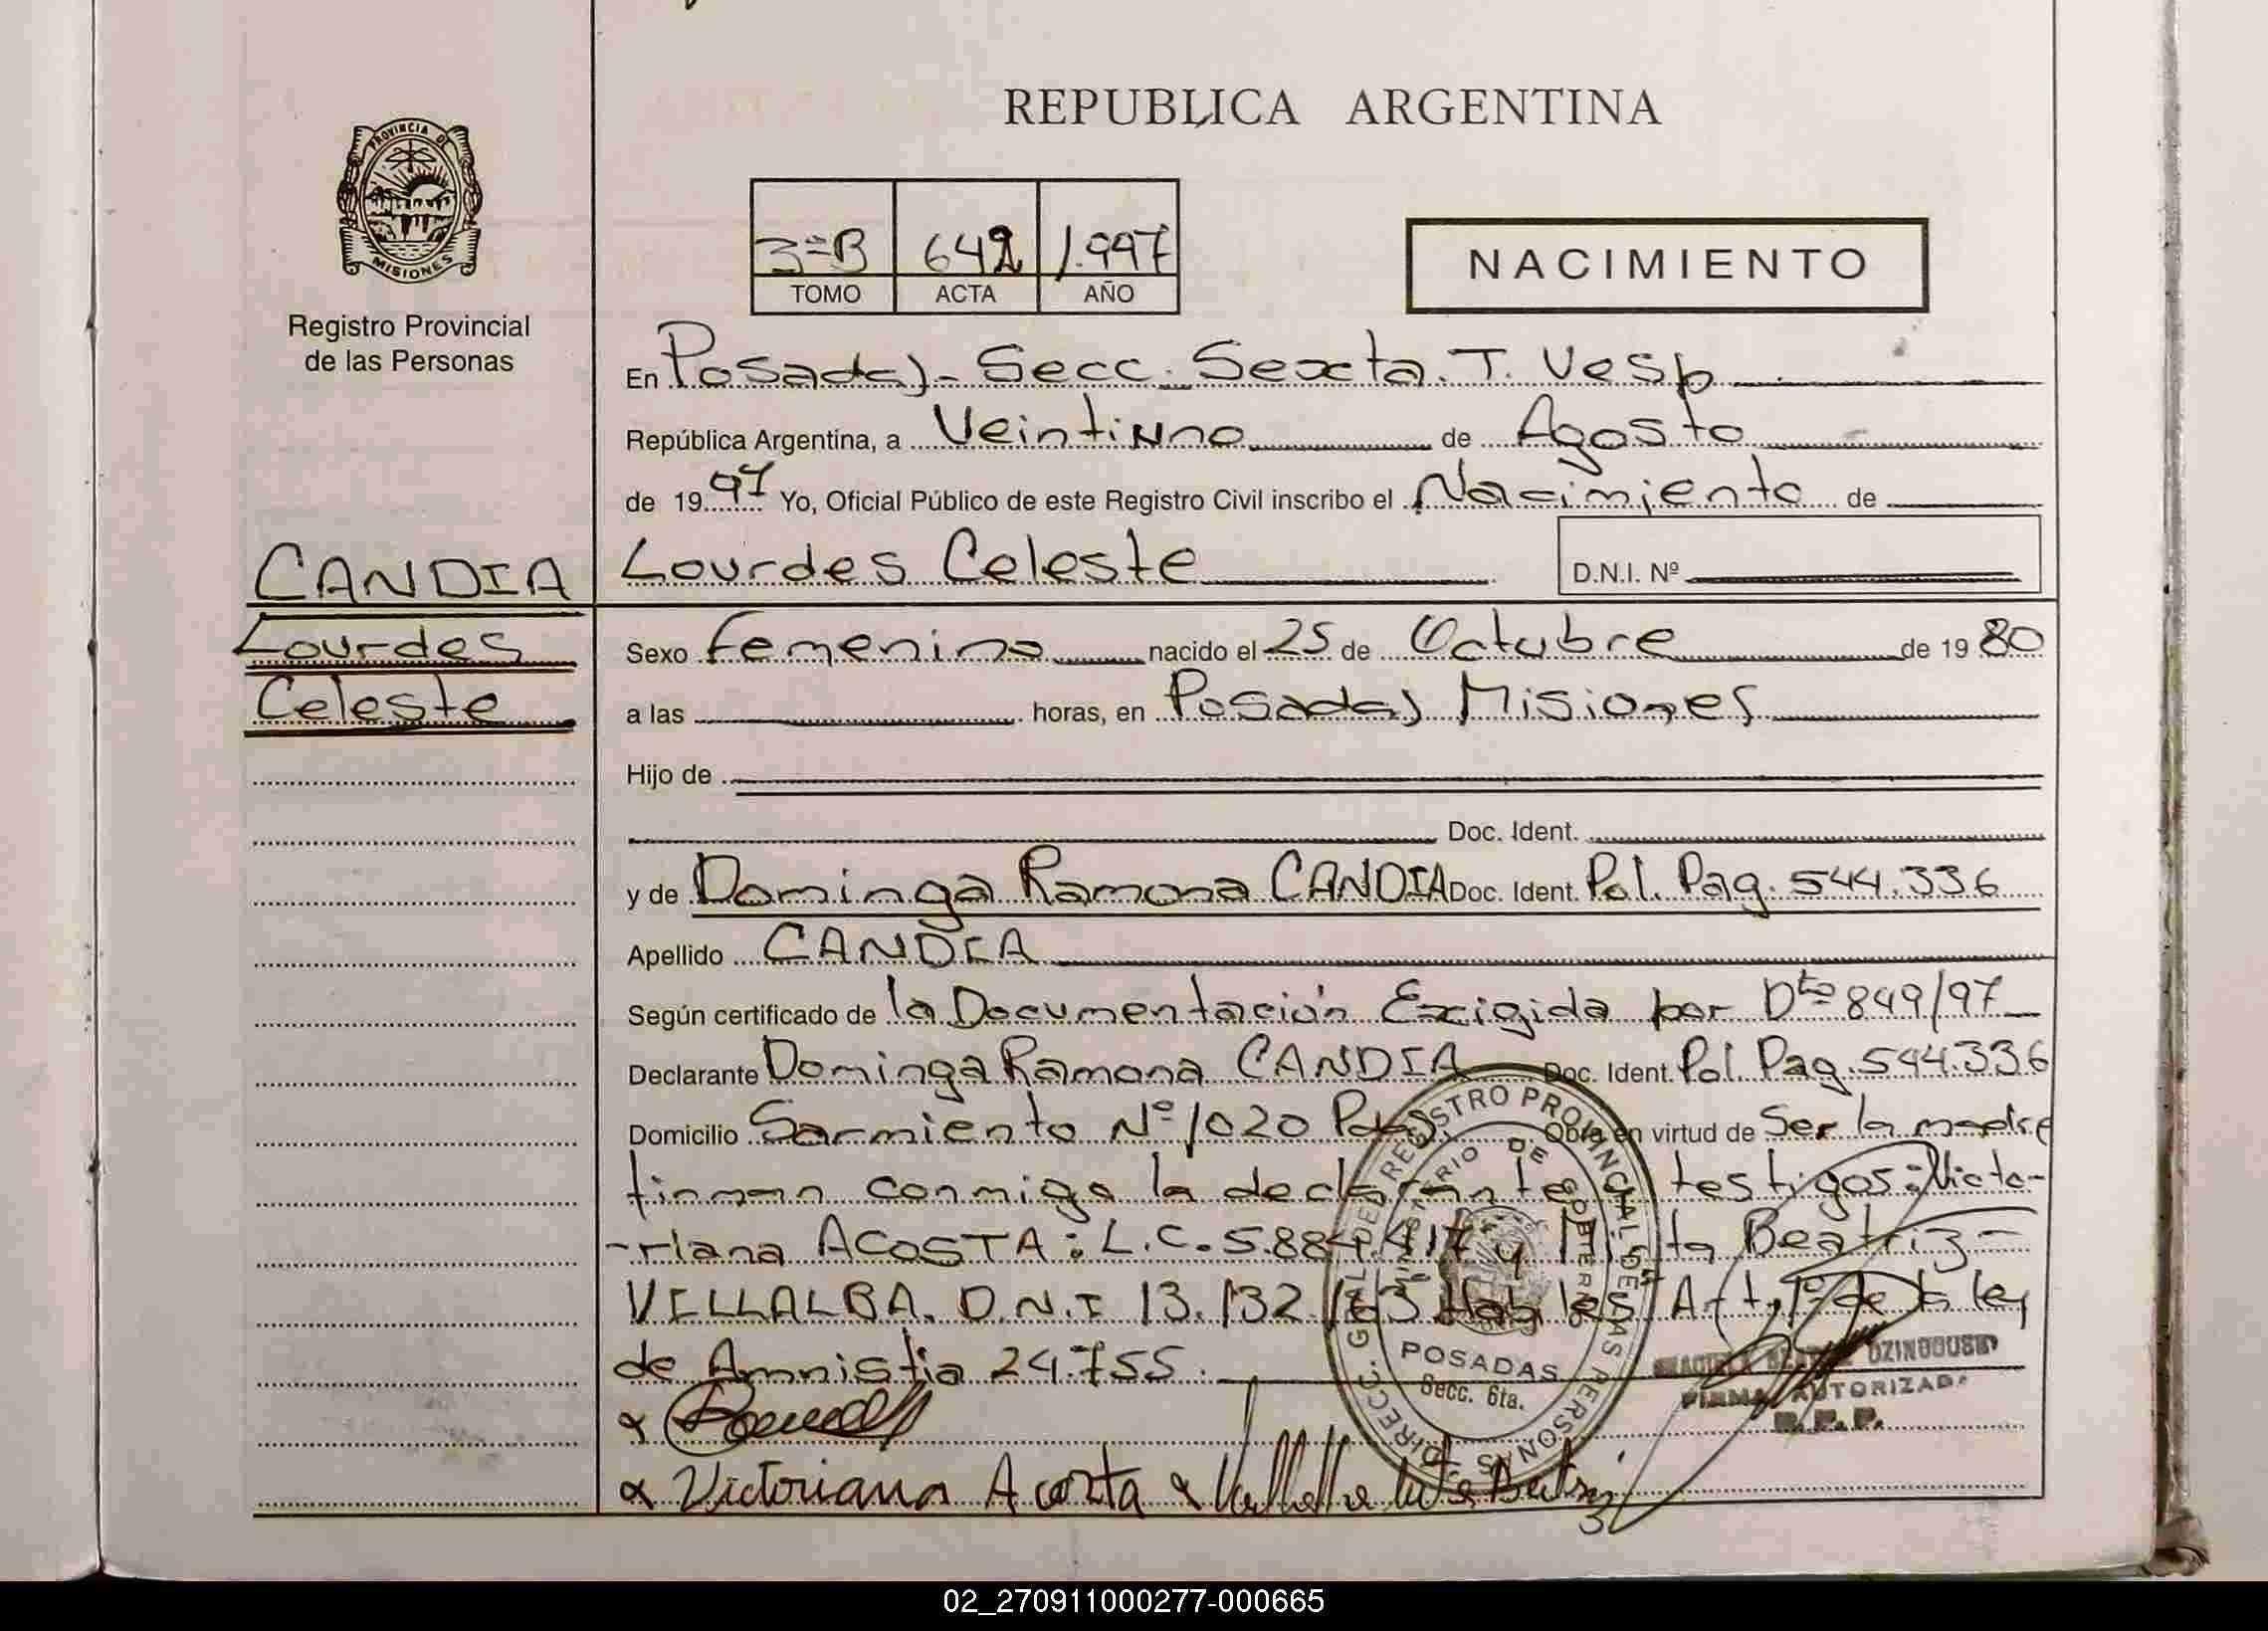 REPUBLICA ARGENTINA
PROVINCIA DE
MISIONES
Registro Provincial
de las Personas
3=B 642 1.997
TOMO ACTA AÑO
NACIMIENTO
En Posadas - Secc. Sexta. T. Vesp
República Argentina, a Veintiuno de Agosto
de 1997 Yo, Oficial Público de este Registro Civil inscribo el Nacimiento de
CANDIA
Lourdes
Celeste
Lourdes Celeste
D.N.I. Nº
Sexo Femenino nacido el 25 de Octubre de 1980
a las horas, en Posadas Misiones
Hijo de
Doc. Ident.
y de Dominga Ramona CANDIA Doc. Ident. Pol. Pag. 544.336
Apellido CANDIA
Según certificado de la Documentación Exigida por Dto 849/97
Declarante Dominga Ramona CANDIA Doc. Ident. Pol. Pag. 544.336
Domicilio Sarmiento Nº 1020 Pdas Obra en virtud de Ser la madre
firman conmigo la declarante y testigos: Victo-
-riana ACOSTA: L.C. 5.884.417 y Mirta Beatriz -
VILLALBA. D.N.I 13.132.163 Habiles Art. 1º de la ley
de Amnistia 24.755.
DIRECC. GRAL. DEL REGISTRO PROVINCIAL DE LAS PERSONAS
MINISTERIO DE GOBIERNO
POSADAS
Secc. 6ta.
FIRMA AUTORIZADA
R. P. P.
Victoriana Acosta
02_270911000277-000665